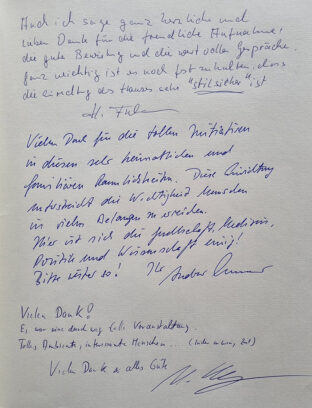 Auch ich sage ganz herzliche und
lieben Dank für die freundliche Aufnahme!
die gute Bewirtung und die wert vollen Gespräche.
ganz wichtig ist es noch fest zu halten, dass
die einrichtung des Hauses sehr "stilsicher" ist
H.
Vielen Dank für die tollen Initiativen
in diesen sehr heimatlichen und
familiären Räumlichkeiten. Diese Einrichtung
unterstreicht die Wichtigkeit Menschen
in vielen Belangen zu erreichen.
Hier ist sich die Gesellschaft, Medizin,
Politik und Wissenschaft einig!
Bitte weiter so! Ihr
Vielen Dank!
Es war eine durchweg tolle Veranstaltung.
Tolles Ambiente, interessante Menschen...
Vielen Dank & alles Gute